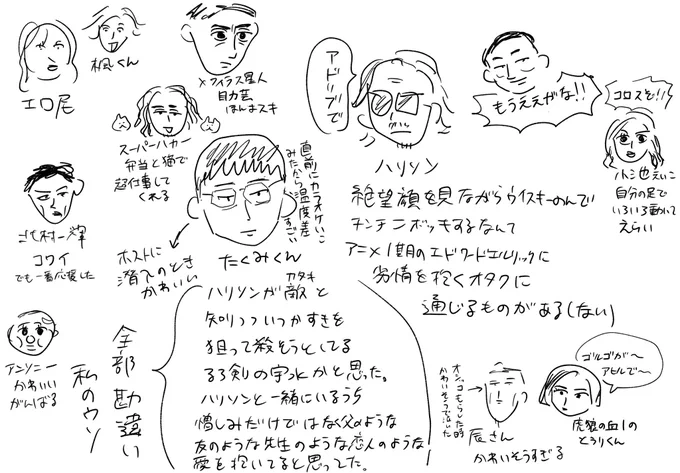 エロ尾
楓くん
メフィラス星人
目力芸
ほんまスキ
スーパーハカー
弁当と猫で
超仕事して
くれる
北村一輝
コワイ
でも一番応援した
ホストに
潜入のとき
かわいい
直前にカラオケいこ
みたから温度差
すごい
たくみくん
アドリブで
ハリソン
もうええがな!!
コロスぞ!!
小池えいこ
自分の足で
いろいろ動いて
えらい
絶望顔を見ながらウイスキーのんで
チンチンボッキするなんて
アニメ1期のエドワードエルリックに
劣情を抱くオタクに
通じるものがある(ない)
アンソニー
かわいい
がんばる
全部勘違い
私のウソ
カタキ
ハリソンが敵と
知りつついつかすきを
狙って殺そうとしてる
るろ剣の宇水かと思った。
ハリソンと一緒にいるうち
憎しみだけではなく父のような
友のような先生のような恋人のような
愛を抱いてると思ってた。
オシッコもらした時
かわいそうで泣いた
辰さん
かわいそうすぎる
ゴルゴが〜
アヒルで〜
虎狼の血1の
とうりくん